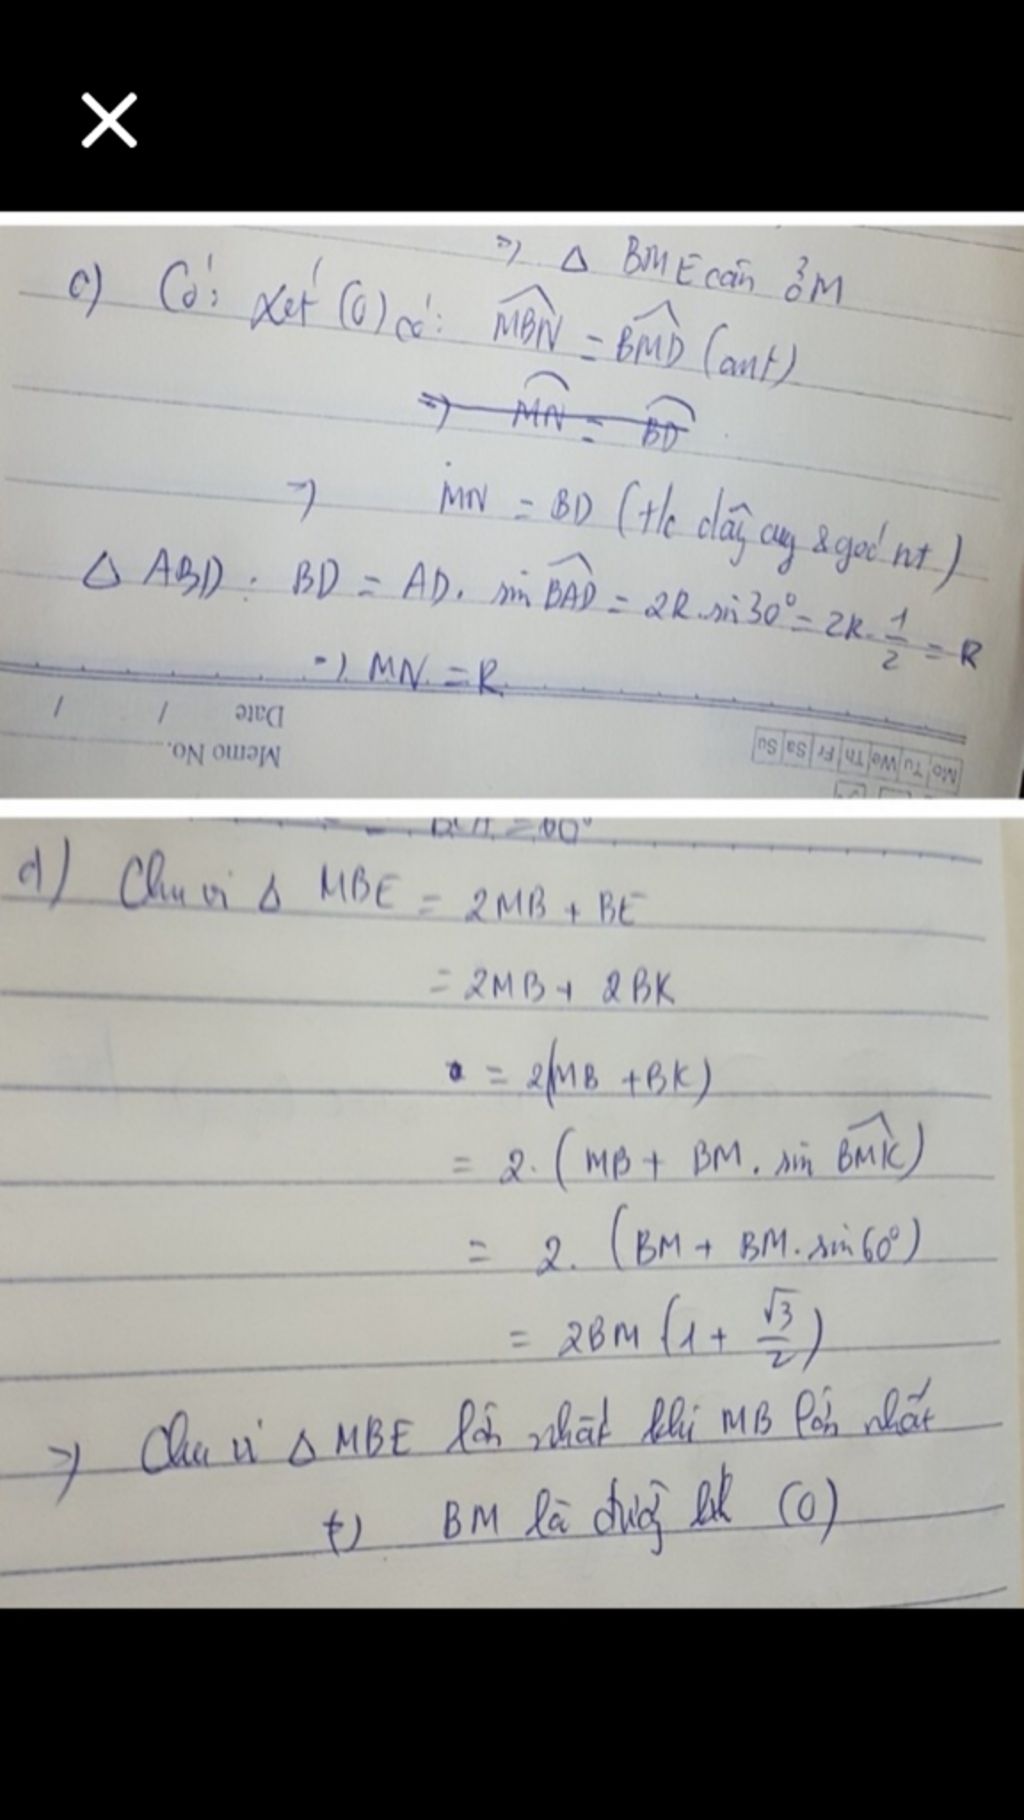 => Δ BME cân ở M
c) Có: xét (O) có: MBN = BMD (cmt)
=> MN = BD
=> MN = BD (t/c dây cung & góc nt)
Δ ABD: BD = AD. sin BAD = 2R.sin30° = 2R.1/2 = R
=> MN = R
Memo No.
Date / /
Mo Tu We Th Fr Sa Su
d) Chu vi Δ MBE = 2MB + BE
= 2MB + 2BK
= 2(MB + BK)
= 2.(MB + BM. sin BMK)
= 2. (BM + BM. sin60°)
= 2BM (1 + √3/2)
=> Chu vi Δ MBE lớn nhất khi MB lớn nhất
BM là đường kk (O)